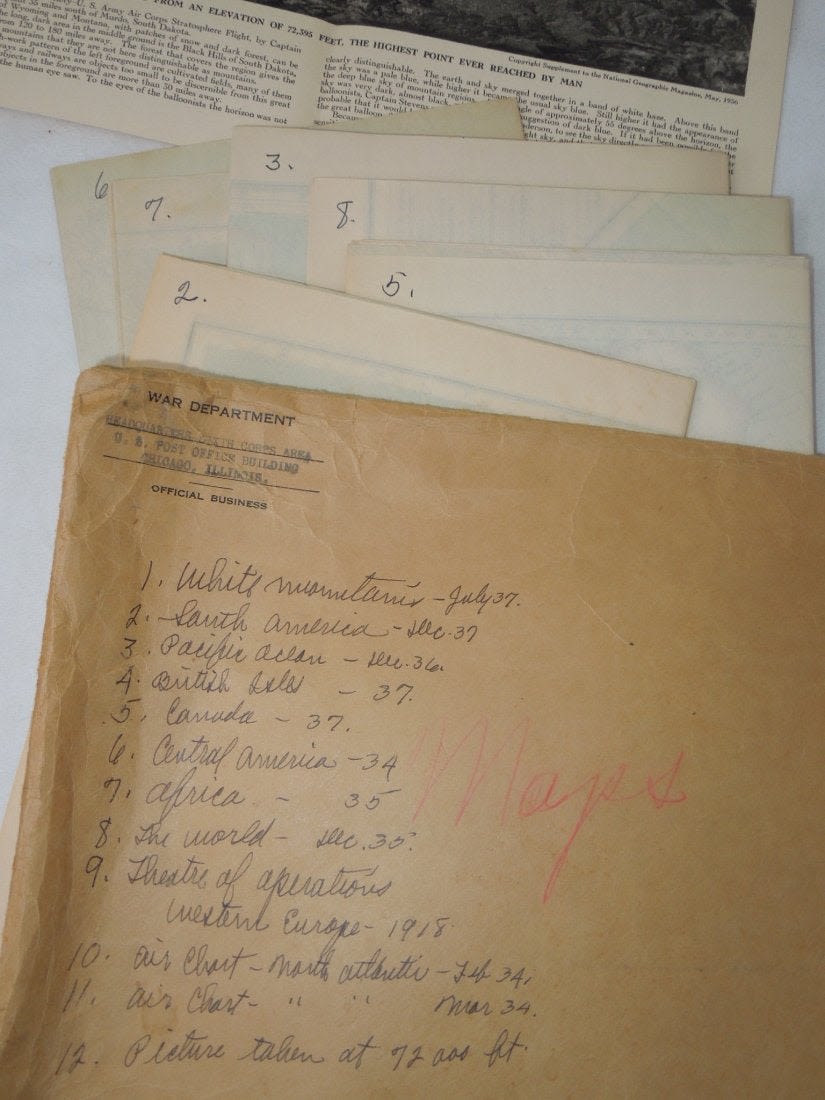 FROM AN ELEVATION OF 72,395 FEET, THE HIGHEST POINT EVER REACHED BY MAN
Copyright Supplement to the National Geographic Magazine, May, 1936
U. S. Army Air Corps Stratosphere Flight, by Captain
35 miles south of Murdo, South Dakota.
of Wyoming and Montana, with patches of snow and dark forest, can be
the long, dark area in the middle ground is the Black Hills of South Dakota,
from 120 to 180 miles away. The forest that covers the region gives the
mountains that they are not here distinguishable as mountains.
work pattern of the left foreground are cultivated fields, many of them
ways and railways are objects too small to be discernible from this great
objects in the foreground are more than 30 miles away.
the human eye saw. To the eyes of the balloonists the horizon was not
clearly distinguishable. The earth and sky merged together in a band of white haze. Above this band
the sky was a pale blue, while higher it became the usual sky blue. Still higher it had the appearance of
the deep blue sky of mountain regions
angle of approximately 55 degrees above the horizon, the
sky was very dark, almost black
suggestion of dark blue. If it had been possible for the
balloonists, Captain Stevens
to see the sky directly
probable that it would
the great balloon
6
7.
3.
8.
2.
5.
WAR DEPARTMENT
HEADQUARTERS SIXTH CORPS AREA
U. S. POST OFFICE BUILDING
CHICAGO, ILLINOIS.
OFFICIAL BUSINESS
1. White mountains - July 37.
2. South america - Dec. 37
3. Pacific Ocean - Dec. 36.
4. British Isles - 37.
5. Canada - 37.
6. Central america - 34
7. africa - 35
8. The world - Dec. 35.
9. Theatre of operations
western Europe - 1918
10. air Chart - north atlantic - Feb 34.
11. air Chart - " " Mar 34.
12. Picture taken at 72 000 ft.
Maps